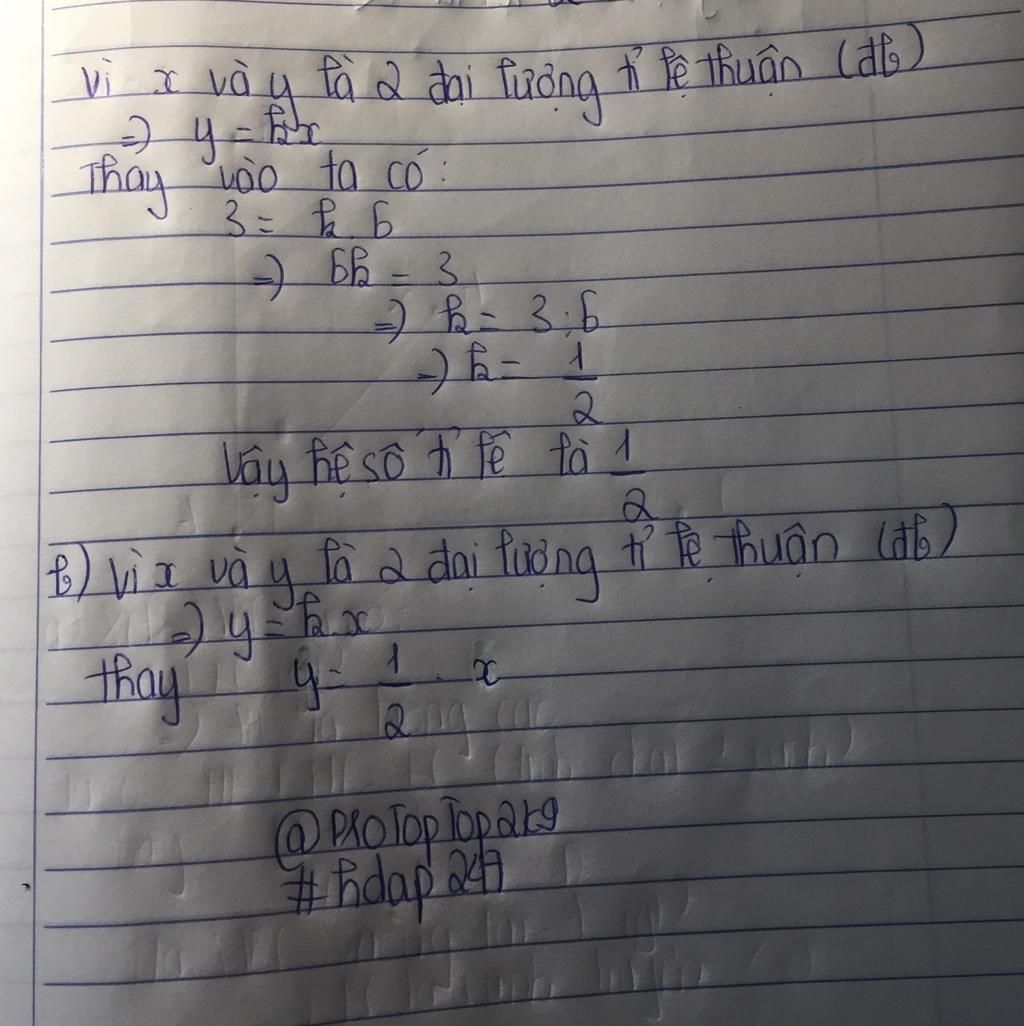 Vì x và y là 2 đại lượng tỉ lệ thuận (đb)
=> y = kx
Thay vào ta có:
3 = k. 6
=> 6k = 3
=> k = 3:6
=> k = 1/2
Vậy hệ số tỉ lệ là 1/2
b) Vì x và y là 2 đại lượng tỉ lệ thuận (đb)
=> y = k.x
thay y = 1/2 . x
@proTopTop2k9
#hdap247